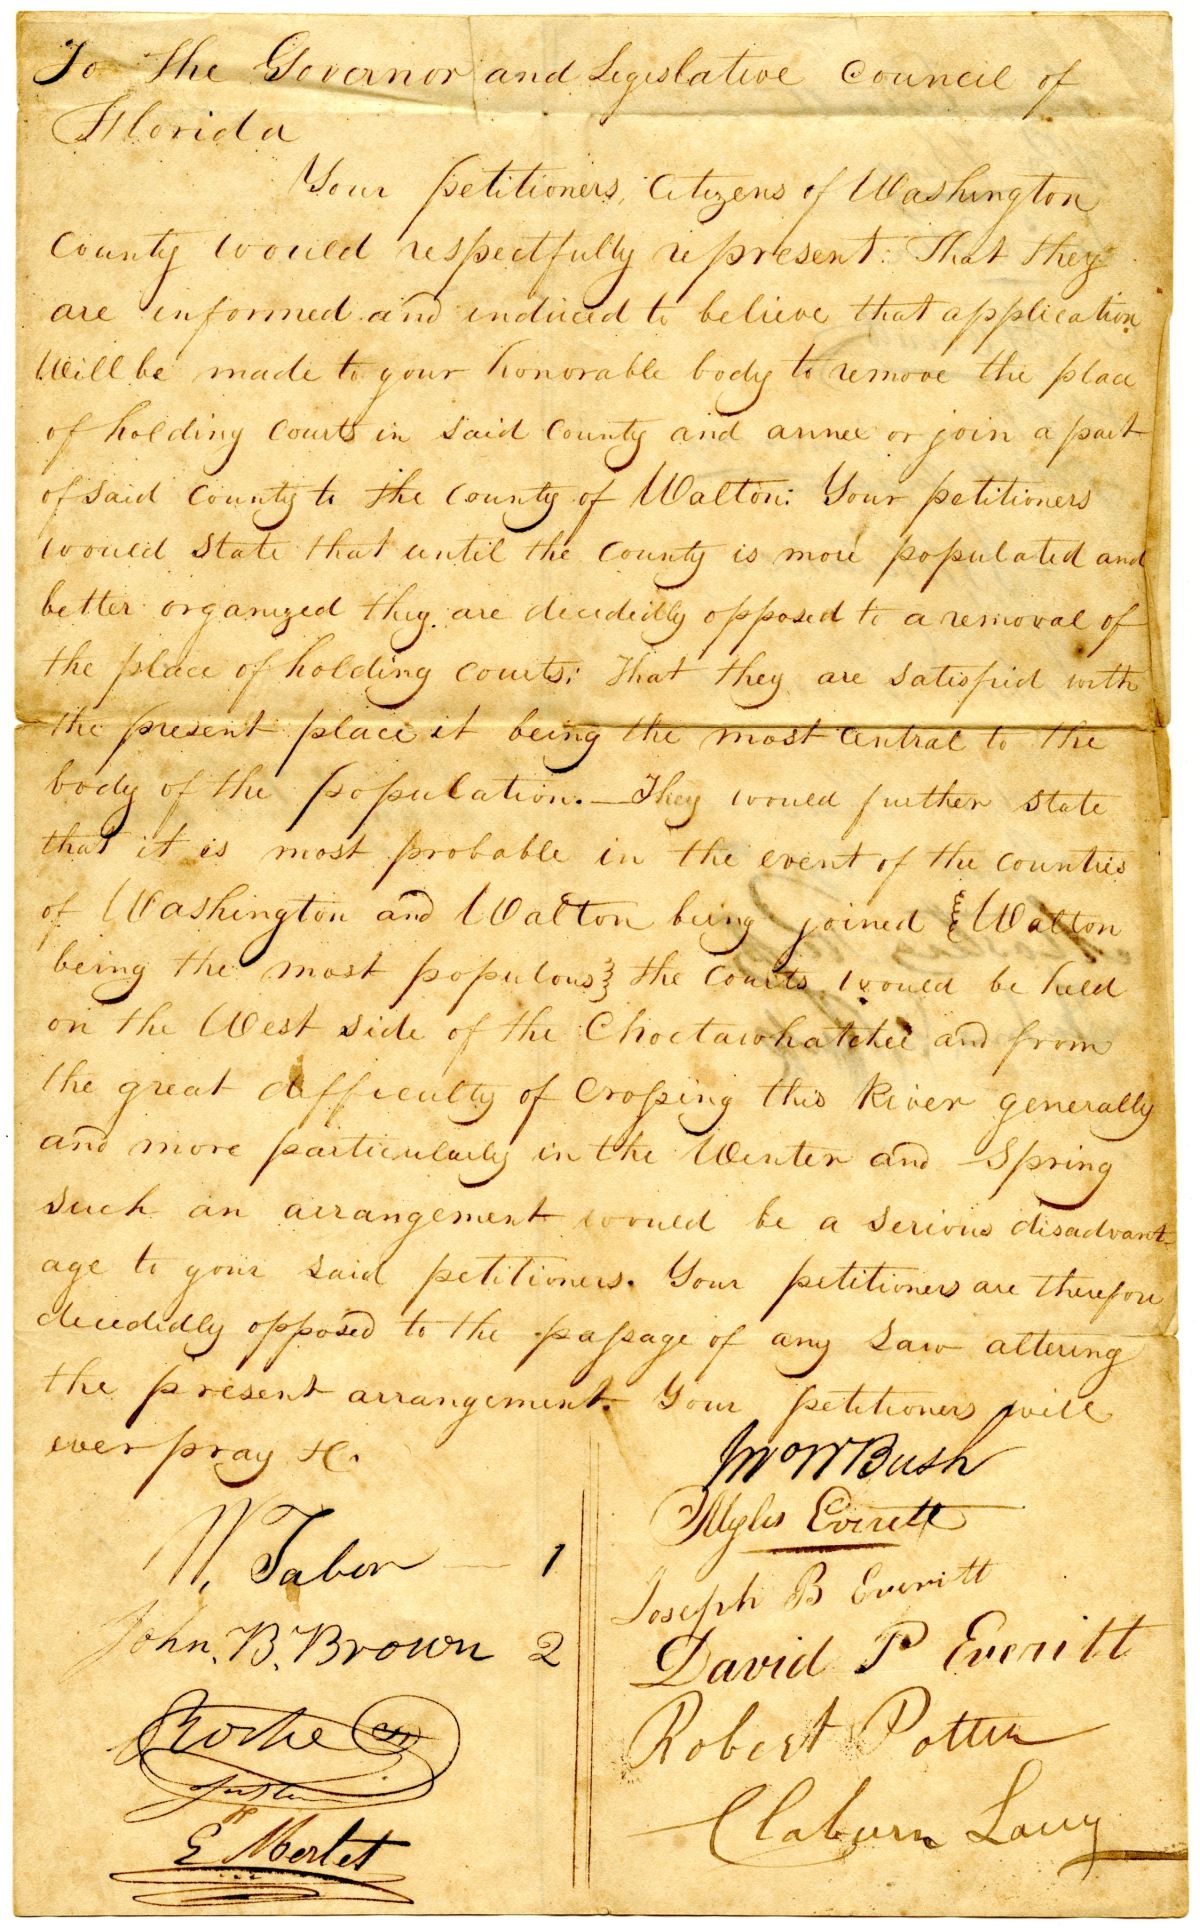 To the Governor and Legislative Council of
Florida
Your petitioners, Citizens of Washington
County would respectfully represent: That they
are informed and induced to believe that application
Will be made to your honorable body to remove the place
of holding Courts in said County and annex or join a part
of said County to the County of Walton: Your petitioners
would State that until the County is more populated and
better organized they are decidedly opposed to a removal of
the place of holding Courts; that they are satisfied with
the present place it being the most Central to the
body of the population. — They would further state
that it is most probable in the event of the counties
of Washington and Walton being joined & Walton
being the most populous & the Courts would be held
on the West side of the Choctawhatchee and from
the great difficulty of Crossing this River generally
and more particularly in the Winter and Spring
such an arrangement would be a serious disadvant
age to your said petitioners. Your petitioners are therefore
decidedly opposed to the passage of any Law altering
the present arrangement. Your petitioners will
ever pray &c.
W. Tabor — 1
John. B. Brown 2
E Merlet
Wm W Bush
Myles Everett
Joseph B Everitt
David P Everitt
Robert Potter
Claburn